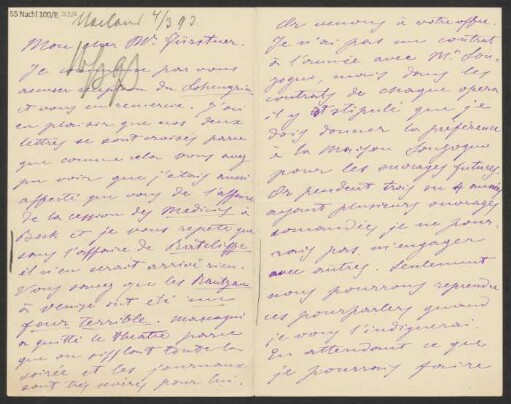 55 Nachl 100/B,
Mailand 4/3 93
Mon cher Mr. Fürstner.
Je par vous
accuser du Lohengrin
et vous en remercie. J'ai
eu plaisir que nos deux
lettres se sont croisés parce
que comme cela vous avez
pu voir que j'étais aussi
affecté que vous de l'affaire
de la cession des Medicis à
Bock et je vous repete que
sans l'affaire de Ratcliffe
il n'en serait arrivé rien.
Vous savez que les Rantzau
à Venise ont été un
four terrible. Mascagni
a quitté le théâtre parce
que on sifflait toute la
soirée et les journaux
sont très sevères pour lui.
Or venons à votre offre.
Je n'ai pas un contrat
à l'année avec Mr. Son-
zogno, mais dans les
contrats de chaque opera
il y est stipulé que je
dois donner la préférence
à la Maison Sonzogno
pour les ouvrages futures.
Or pendent trois ou 4 années
ayant plusieurs ouvrages
comandées je ne pour-
rais pas m'engager
avec autres. Seulement
nous pourrons reprendre
ces pourparlers quand
je vous l'indiquerai.
En attendant ce que
je pourrais faire